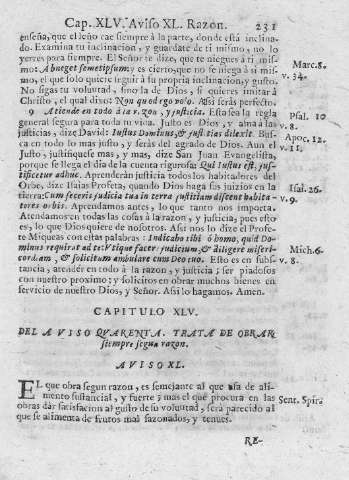 Cap. XLV. Aviso XL. Razon. 231
enseña, que el leño cae siempre à la parte, donde està inclina-
do. Examina tu inclinacion, y guardate de ti mismo, no lo
yerres para siempre. El Señor te dize, que te niegues à ti mis-
mo: Abneget semetipsum: y es cierto, que no se niega à si mis- Marc. 8.
mo, el que solo quiere seguir à su propria inclinacion, y gusto. v. 34.
No sigas tu voluntad, sino la de Dios, si quieres imitar à
Christo, el qual dixo: Non quod ego volo. Assi seràs perfecto.
9 Atiende en todo à la razon, y justicia. Esta sea la regla Psal. 10
general segura para toda tu vida. Justo es Dios, y ama à las v. 8.
justicias, dize David: Iustus Dominus, & justitias dilexit. Bus- Apoc. 12.
ca en todo lo mas justo, y seràs del agrado de Dios. Aun el v. 11.
Justo, justifiquese mas, y mas, dize San Juan Evangelista,
porque se llega el dia de la cuenta rigurosa: Qui Iustus est, jus-
tificetur adhuc. Aprenderàn justicia todos los habitadores del
Orbe, dize Isaias Profeta, quando Dios haga sus juizios en la Isai. 26.
tierra: Cum feceris judicia tua in terra justitiam discent habita- v. 9.
tores orbis. Aprendamos antes, lo que tanto nos importa.
Atendamos en todas las cosas à la razon, y justicia, pues esto
es, lo que Dios quiere de nosotros. Assi nos lo dize el Profe-
te Miqueas con estas palabras: Indicabo tibi ò homo, quid Do-
minus requirat ad te: Vtique facere judicium, & diligere miseri- Mich. 6.
cordiam, & solicitum ambulare cum Deo tuo. Esto es en subs- v. 8.
tancia, atender en todo à la razon, y justicia; ser piadosos
con nuestro proximo; y solicitos en obrar muchos bienes en
servicio de nuestro Dios, y Señor. Assi lo hagamos. Amen.
CAPITULO XLV.
DEL AVISO QVARENTA. TRATA DE OBRAR
siempre segun razon.
AVISO XL.
EL que obra segun razon, es semejante al que usa de ali-
mento sustancial, y fuerte; mas el que procura en las Sent. Spir.
obras dar satisfacion al gusto de su voluntad, serà parecido al
que se alimenta de frutos mal sazonados, y tenues.
RE-